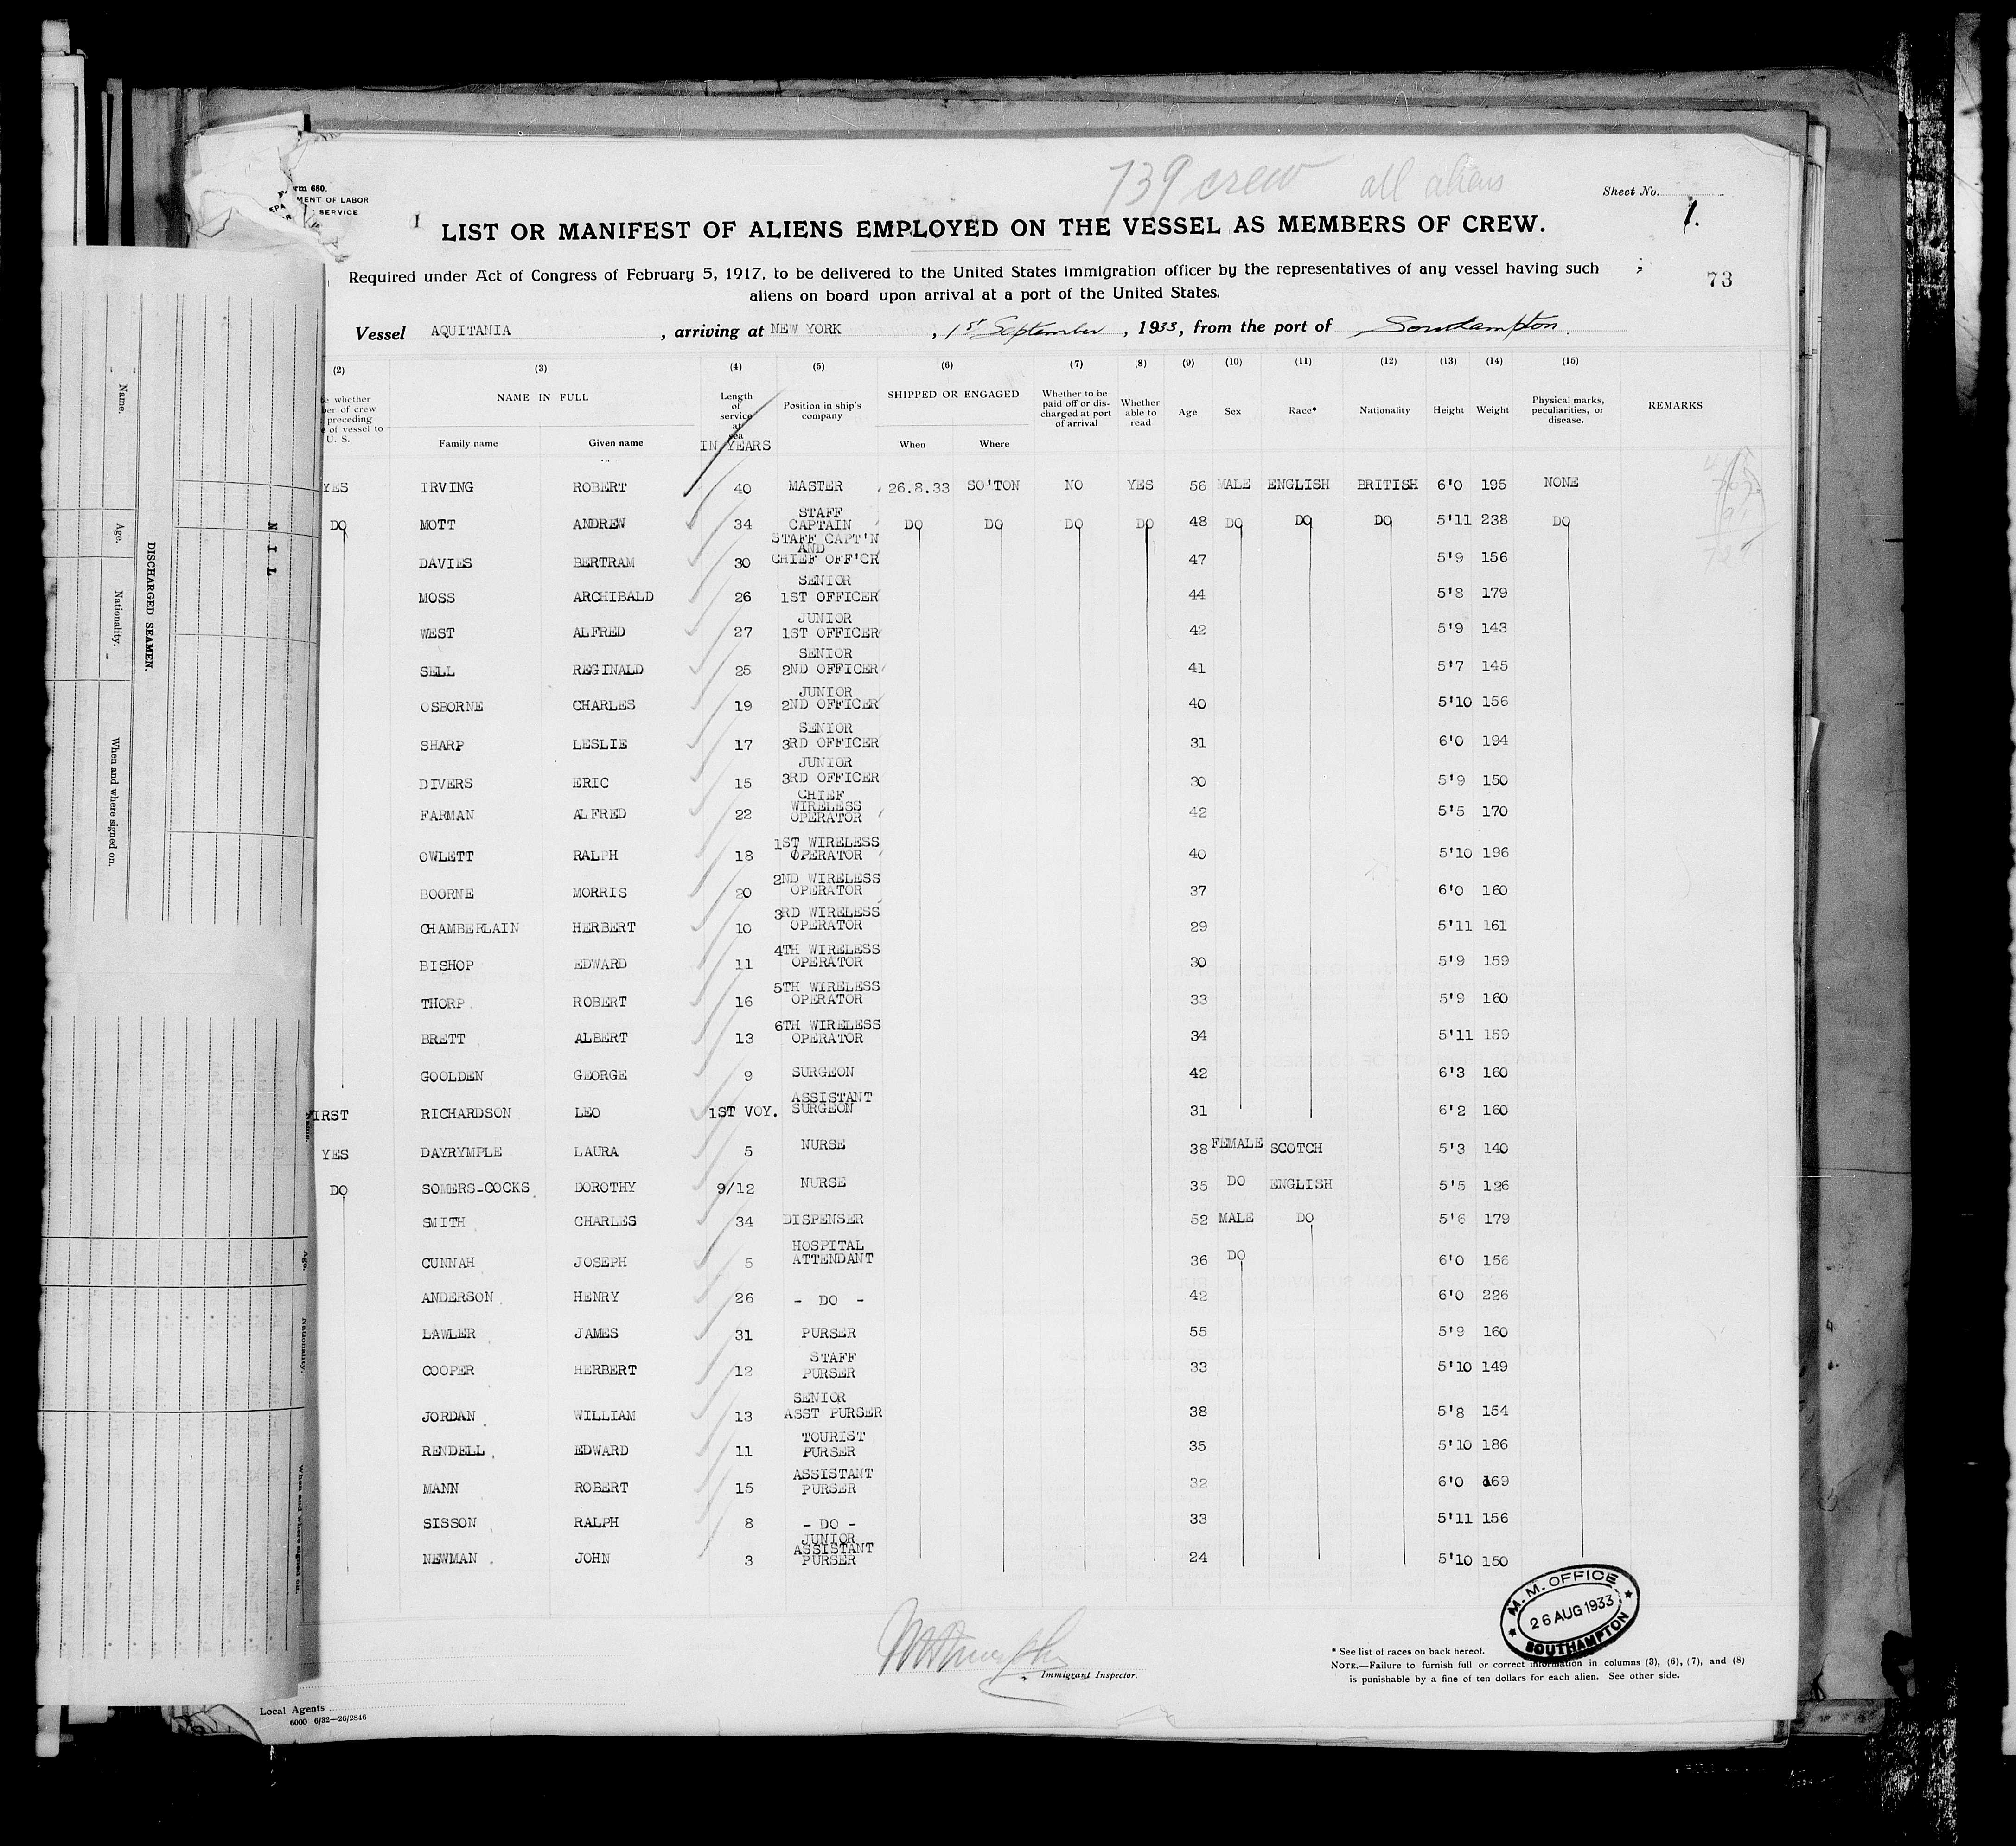 739 crew all aliens
rm 680.
MENT OF LABOR
SERVICE
Sheet No.
1.
I
LIST OR MANIFEST OF ALIENS EMPLOYED ON THE VESSEL AS MEMBERS OF CREW.
Required under Act of Congress of February 5, 1917, to be delivered to the United States immigration officer by the representatives of any vessel having such
aliens on board upon arrival at a port of the United States.
73
Vessel AQUITANIA , arriving at NEW YORK , 1st September , 1933, from the port of Southampton.
(2) (3) (4) (5) (6) (7) (8) (9) (10) (11) (12) (13) (14) (15)
whether
er of crew
preceding
of vessel to
U. S.
NAME IN FULL
Family name Given name
Length
of
service
at
sea
IN YEARS
Position in ship's
company
SHIPPED OR ENGAGED
When Where
Whether to be
paid off or dis-
charged at port
of arrival
Whether
able to
read
Age Sex Race* Nationality Height Weight
Physical marks,
peculiarities, or
disease.
REMARKS
YES IRVING ROBERT 40 MASTER 26.8.33 SO'TON NO YES 56 MALE ENGLISH BRITISH 6'0 195 NONE
DO MOTT ANDREW 34 STAFF CAPTAIN DO DO DO DO 48 DO DO DO 5'11 238 DO
DAVIES BERTRAM 30 STAFF CAPT'N AND CHIEF OFF'CR 47 5'9 156
MOSS ARCHIBALD 26 SENIOR 1ST OFFICER 44 5'8 179
WEST ALFRED 27 JUNIOR 1ST OFFICER 42 5'9 143
SELL REGINALD 25 SENIOR 2ND OFFICER 41 5'7 145
OSBORNE CHARLES 19 JUNIOR 2ND OFFICER 40 5'10 156
SHARP LESLIE 17 SENIOR 3RD OFFICER 31 6'0 194
DIVERS ERIC 15 JUNIOR 3RD OFFICER 30 5'9 150
FARMAN ALFRED 22 CHIEF WIRELESS OPERATOR 42 5'5 170
OWLETT RALPH 18 1ST WIRELESS OPERATOR 40 5'10 196
BOORNE MORRIS 20 2ND WIRELESS OPERATOR 37 6'0 160
CHAMBERLAIN HERBERT 10 3RD WIRELESS OPERATOR 29 5'11 161
BISHOP EDWARD 11 4TH WIRELESS OPERATOR 30 5'9 159
THORP ROBERT 16 5TH WIRELESS OPERATOR 33 5'9 160
BRETT ALBERT 13 6TH WIRELESS OPERATOR 34 5'11 159
GOOLDEN GEORGE 9 SURGEON 42 6'3 160
FIRST RICHARDSON LEO 1ST VOY. ASSISTANT SURGEON 31 6'2 160
YES DAYRYMPLE LAURA 5 NURSE 38 FEMALE SCOTCH 5'3 140
DO SOMERS-COCKS DOROTHY 9/12 NURSE 35 DO ENGLISH 5'5 126
SMITH CHARLES 34 DISPENSER 52 MALE DO 5'6 179
CUNNAH JOSEPH 5 HOSPITAL ATTENDANT 36 DO 6'0 156
ANDERSON HENRY 26 - DO - 42 6'0 226
LAWLER JAMES 31 PURSER 55 5'9 160
COOPER HERBERT 12 STAFF PURSER 33 5'10 149
JORDAN WILLIAM 13 SENIOR ASST PURSER 38 5'8 154
RENDELL EDWARD 11 TOURIST PURSER 35 5'10 186
MANN ROBERT 15 ASSISTANT PURSER 32 6'0 169
SISSON RALPH 8 - DO - 33 5'11 156
NEWMAN JOHN 3 JUNIOR ASSISTANT PURSER 24 5'10 150
M. M. OFFICE
26 AUG 1933
SOUTHAMPTON
Immigrant Inspector.
* See list of races on back hereof.
NOTE.—Failure to furnish full or correct information in columns (3), (6), (7), and (8)
is punishable by a fine of ten dollars for each alien. See other side.
Local Agents
6000 6/32—26/2846
DISCHARGED SEAMEN.
Name. Age. Nationality. When and where signed on.
NIL
Name. Age. Nationality. When and where signed on.